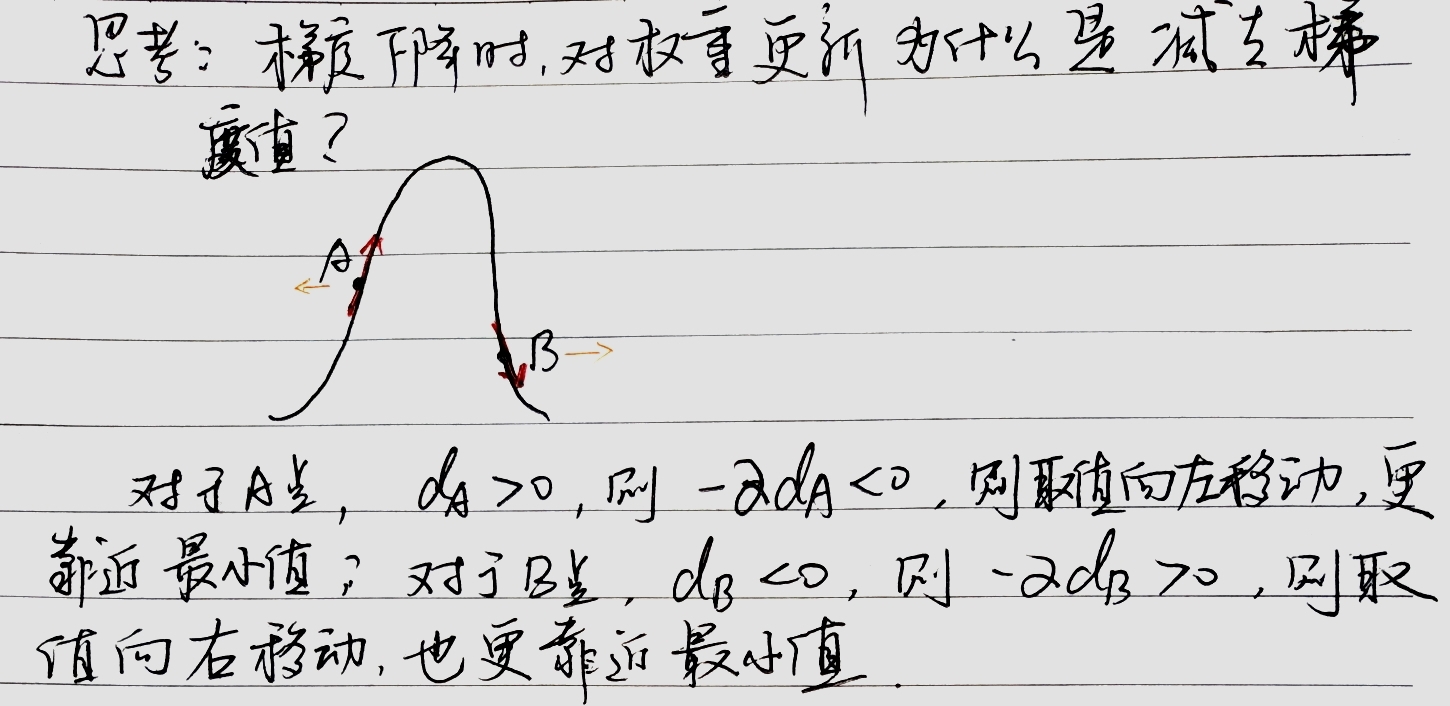 思考：梯度下降时，对权重更新为什么是减去梯
度值？
A
B
对于A点，dA>0，则 -αdA<0，则取值向左移动，更
靠近最小值；对于B点，dB<0，则 -αdB>0，则取
值向右移动，也更靠近最小值.